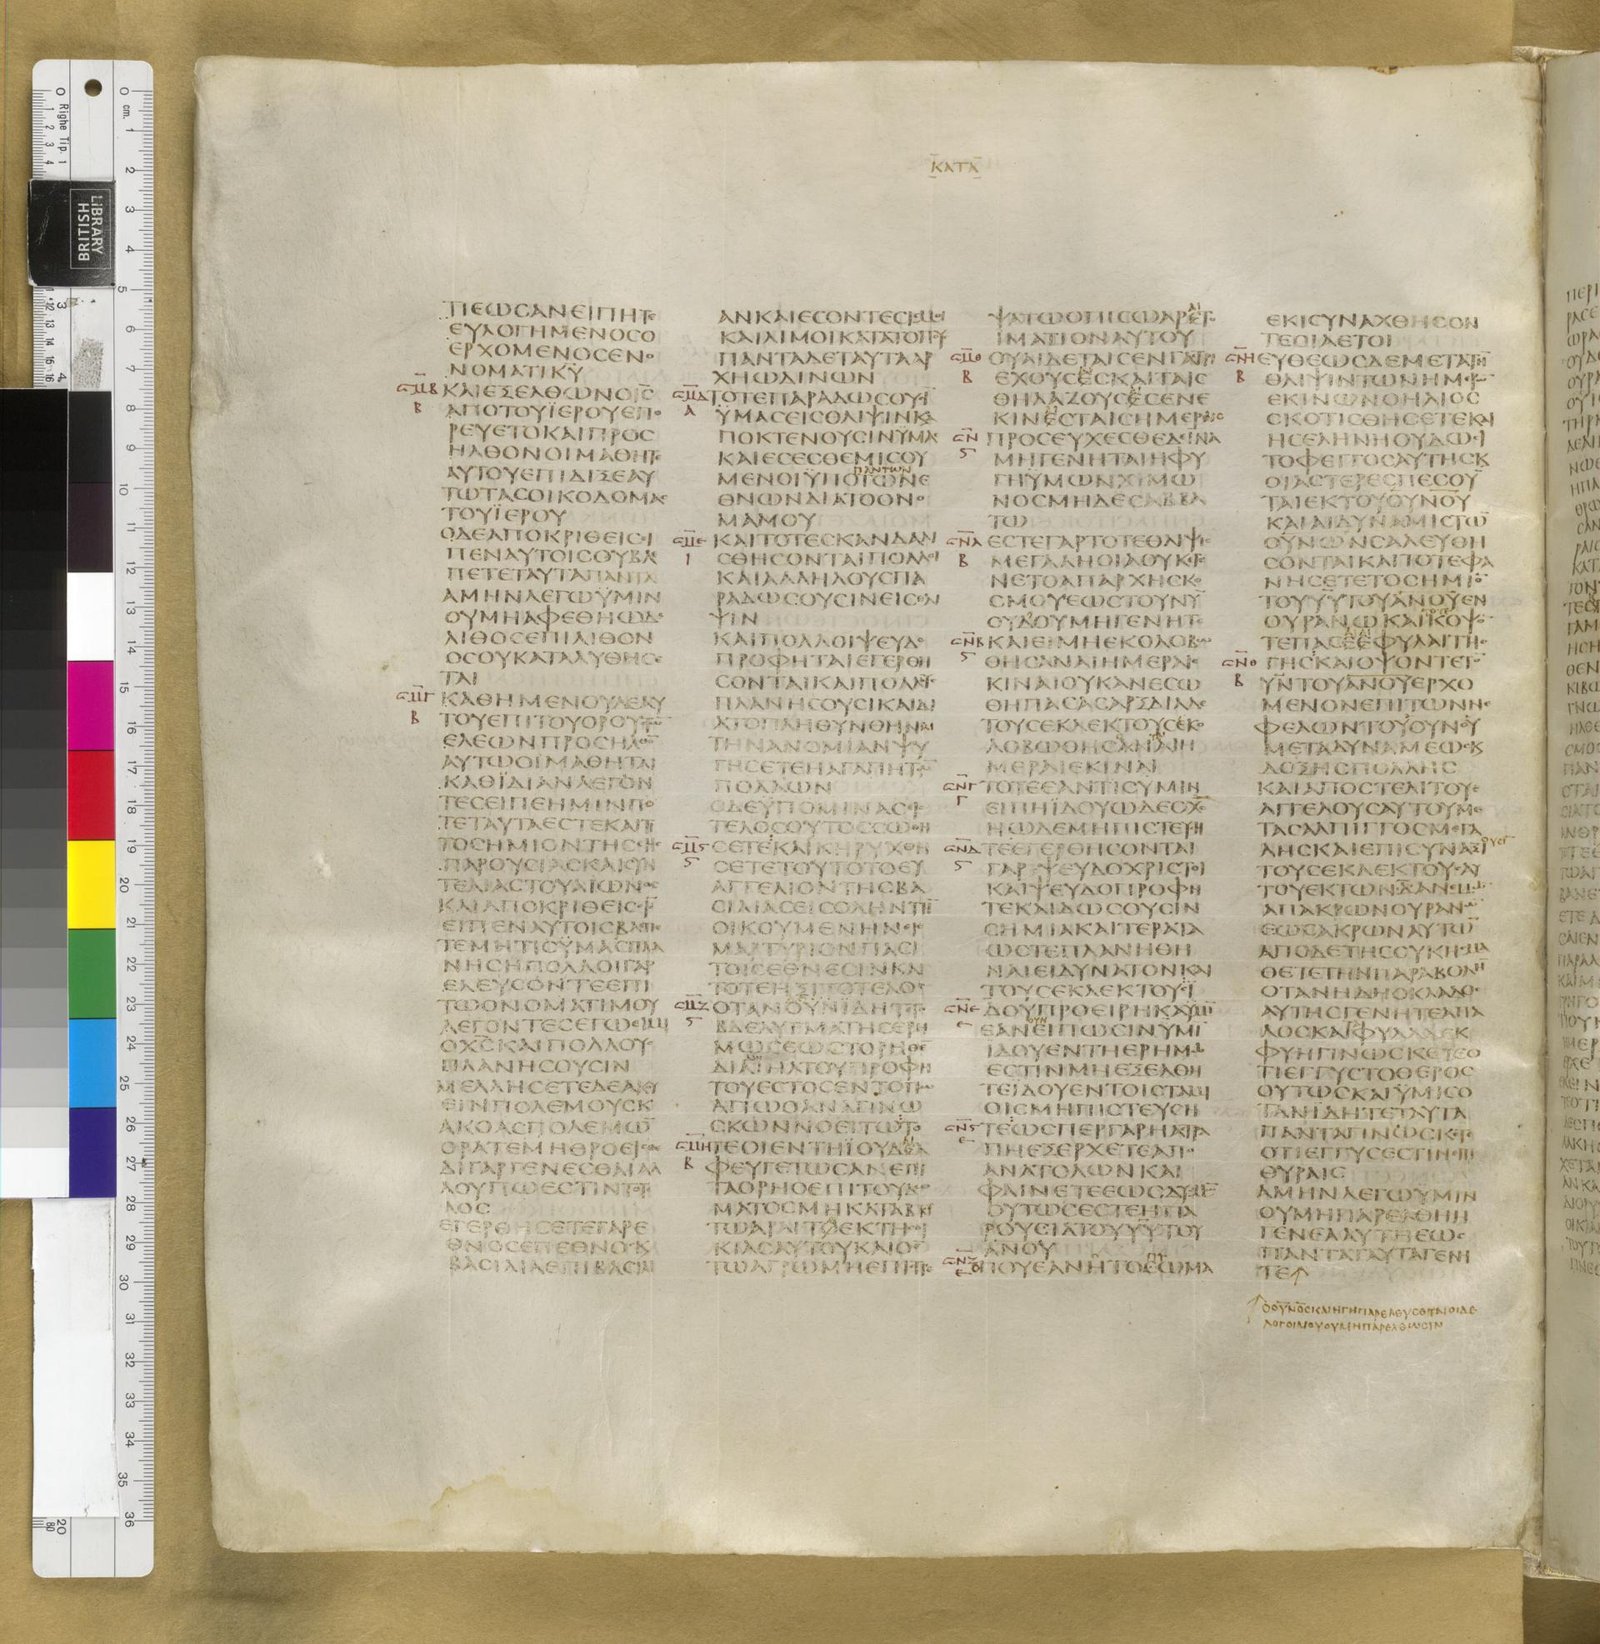 ΚΑΤΑ
ΤΙΕΩΣΑΝΕΙΠΗΤΕ
ΕΥΛΟΓΗΜΕΝΟΣΟ
ΕΡΧΟΜΕΝΟΣΕΝΟ
ΝΟΜΑΤΙΚΥ
ΚΑΙΕΞΕΛΘΩΝΟΙΣ
ΑΠΟΤΟΥΪΕΡΟΥΕΠΟ
ΡΕΥΕΤΟΚΑΙΠΡΟΣ
ΗΛΘΟΝΟΙΜΑΘΗΤΕ
ΑΥΤΟΥΕΠΙΔΙΞΕΑΥ
ΤΩΤΑΣΟΙΚΟΔΟΜΑΣ
ΤΟΥΪΕΡΟΥ
ΟΔΕΑΠΟΚΡΙΘΕΙΣΕΙ
ΠΕΝΑΥΤΟΙΣΟΥΒΛΕ
ΠΕΤΕΤΑΥΤΑΠΑΝΤΑ
ΑΜΗΝΛΕΓΩΫΜΙΝ
ΟΥΜΗΑΦΕΘΗΩΔΕ
ΛΙΘΟΣΕΠΙΛΙΘΟΝ
ΟΣΟΥΚΑΤΑΛΥΘΗΣΕ
ΤΑΙ
ΚΑΘΗΜΕΝΟΥΔΕΑΥ
ΤΟΥΕΠΙΤΟΥΟΡΟΥΣΤΩ
ΕΛΕΩΝΠΡΟΣΗΛΘΟΝ
ΑΥΤΩΟΙΜΑΘΗΤΑΙ
ΚΑΘΙΔΙΑΝΛΕΓΟΝ
ΤΕΣΕΙΠΕΗΜΙΝΠΟ
ΤΕΤΑΥΤΑΕΣΤΕΚΑΙΤΙ
ΤΟΣΗΜΙΟΝΤΗΣΣΗΣ
ΠΑΡΟΥΣΙΑΣΚΑΙΣΥΝ
ΤΕΛΙΑΣΤΟΥΑΙΩΝΟΣ
ΚΑΙΑΠΟΚΡΙΘΕΙΣΟΙΣ
ΕΙΠΕΝΑΥΤΟΙΣΒΛΕΠΕ
ΤΕΜΗΤΙΣΫΜΑΣΠΛΑ
ΝΗΣΗΠΟΛΛΟΙΓΑΡ
ΕΛΕΥΣΟΝΤΕΕΠΙ
ΤΩΟΝΟΜΑΤΙΜΟΥ
ΛΕΓΟΝΤΕΣΕΓΩΕΙΜΙ
ΟΧΣΚΑΙΠΟΛΛΟΥΣ
ΠΛΑΝΗΣΟΥΣΙΝ
ΜΕΛΛΗΣΕΤΕΔΕΑΚΟΥ
ΕΙΝΠΟΛΕΜΟΥΣΚ
ΑΚΟΑΣΠΟΛΕΜΩ
ΟΡΑΤΕΜΗΘΡΟΕΙΣΘΕ
ΔΙΓΑΡΓΕΝΕΣΘΑΙΑΛ
ΛΟΥΠΩΕΣΤΙΝΤΟΤΕ
ΛΟΣ
ΕΓΕΡΘΗΣΕΤΕΓΑΡΕ
ΘΝΟΣΕΠΕΘΝΟΣΚ
ΒΑΣΙΛΙΑΕΠΙΒΑΣΙΛΙ
ΑΝΚΑΙΕΣΟΝΤΕΣΙΣΜΟΙ
ΚΑΙΛΙΜΟΙΚΑΤΑΤΟΠΟΥΣ
ΠΑΝΤΑΔΕΤΑΥΤΑΑΡ
ΧΗΩΔΙΝΩΝ
ΤΟΤΕΠΑΡΑΔΩΣΟΥΣΙ
ΫΜΑΣΕΙΣΘΛΙΨΙΝΚΑΙ
ΠΟΚΤΕΝΟΥΣΙΝΥΜΑΣ
ΚΑΙΕΣΕΣΘΕΜΙΣΟΥ
ΠΑΝΤΩΝ
ΜΕΝΟΙΫΠΟΤΩΝΕ
ΘΝΩΝΔΙΑΤΟΟΝΟ
ΜΑΜΟΥ
ΚΑΙΤΟΤΕΣΚΑΝΔΑΛΙ
ΣΘΗΣΟΝΤΑΙΠΟΛΛΟΙ
ΚΑΙΑΛΛΗΛΟΥΣΠΑ
ΡΑΔΩΣΟΥΣΙΝΕΙΣΘΛΙ
ΨΙΝ
ΚΑΙΠΟΛΛΟΙΨΕΥΔΟ
ΠΡΟΦΗΤΑΙΕΓΕΡΘΗ
ΣΟΝΤΑΙΚΑΙΠΟΛΛΟΥΣ
ΠΛΑΝΗΣΟΥΣΙΚΑΙΔΙ
ΑΤΟΠΛΗΘΥΝΘΗΝΑΙ
ΤΗΝΑΝΟΜΙΑΝΨΥ
ΓΗΣΕΤΕΗΑΓΑΠΗΤΩ
ΠΟΛΛΩΝ
ΟΔΕΫΠΟΜΙΝΑΣΕΙΣ
ΤΕΛΟΣΟΥΤΟΣΣΩΘΗ
ΣΕΤΕΚΑΙΚΗΡΥΧΘΗ
ΣΕΤΕΤΟΥΤΟΤΟΕΥ
ΑΓΓΕΛΙΟΝΤΗΣΒΑ
ΣΙΛΙΑΣΕΙΣΟΛΗΝΤΗ
ΟΙΚΟΥΜΕΝΗΝΕΙΣ
ΜΑΡΤΥΡΙΟΝΠΑΣΙ
ΤΟΙΣΕΘΝΕΣΙΝΚΑΙ
ΤΟΤΕΗΞΙΤΟΤΕΛΟΣ
ΟΤΑΝΟΥΝΙΔΗΤΕΤΟ
ΒΔΕΛΥΓΜΑΤΗΣΕΡΗ
ΜΩΣΕΩΣΤΟΡΗΘΕ
ΔΙΑΔΑΝΙΗΛΤΟΥΠΡΟΦΗ
ΤΟΥΕΣΤΟΣΕΝΤΟΠΩ
ΑΓΙΩΟΑΝΑΓΙΝΩ
ΣΚΩΝΝΟΕΙΤΩΤΟ
ΤΕΟΙΕΝΤΗΪΟΥΔΑΙΑ
ΦΕΥΓΕΤΩΣΑΝΕΠΙ
ΤΑΟΡΗΟΕΠΙΤΟΥΔΩ
ΜΑΤΟΣΜΗΚΑΤΑΒΑΤΩ
ΤΩΑΡΑΙΤΑΕΚΤΗΣΟΙ
ΚΙΑΣΑΥΤΟΥΚΑΙΟΕΝ
ΤΩΑΓΡΩΜΗΕΠΙΣΤΡΕ
ΨΑΤΩΟΠΙΣΩΑΡΑΙΤΟ
ΙΜΑΤΙΟΝΑΥΤΟΥ
ΟΥΑΙΔΕΤΑΙΣΕΝΓΑΣΤΡΙ
ΕΧΟΥΣΕΣΚΑΙΤΑΙΣ
ΘΗΛΑΖΟΥΣΕΣΕΝΕ
ΚΙΝΕΣΤΑΙΣΗΜΕΡΑΙΣ
ΠΡΟΣΕΥΧΕΣΘΕΔΕΙΝΑ
ΜΗΓΕΝΗΤΑΙΗΦΥ
ΓΗΥΜΩΝΧΙΜΩ
ΝΟΣΜΗΔΕΣΑΒΒΑ
ΤΩ
ΕΣΤΕΓΑΡΤΟΤΕΘΛΙΨΙΣ
ΜΕΓΑΛΗΟΙΑΟΥΚΕΓΕ
ΝΕΤΟΑΠΑΡΧΗΣΚΟ
ΣΜΟΥΕΩΣΤΟΥΝΥ
ΟΥΔΟΥΜΗΓΕΝΗΤΕ
ΚΑΙΕΙΜΗΕΚΟΛΟΒΩ
ΘΗΣΑΝΑΙΗΜΕΡΑΙΕ
ΚΙΝΑΙΟΥΚΑΝΕΣΩ
ΘΗΠΑΣΑΣΑΡΞΔΙΑΔΕ
ΤΟΥΣΕΚΛΕΚΤΟΥΣΕΚΟ
ΛΟΒΩΘΗΣΑΝΑΙΗ
ΜΕΡΑΙΕΚΙΝΑΙ
ΤΟΤΕΕΑΝΤΙΣΥΜΙΝ
ΕΙΠΗΪΔΟΥΩΔΕΟΧΣ
ΗΩΔΕΜΗΠΙΣΤΕΥΗ
ΤΕΕΓΕΡΘΗΣΟΝΤΑΙ
ΓΑΡΨΕΥΔΟΧΡΙΣΤΟΙ
ΚΑΙΨΕΥΔΟΠΡΟΦΗ
ΤΕΚΑΙΔΩΣΟΥΣΙΝ
ΣΗΜΙΑΚΑΙΤΕΡΑΤΑ
ΩΣΤΕΠΛΑΝΗΘΗ
ΝΑΙΕΙΔΥΝΑΤΟΝΚΑΙ
ΤΟΥΣΕΚΛΕΚΤΟΥΣΪ
ΔΟΥΠΡΟΕΙΡΗΚΑΫΜΙ
ΕΑΝΟΥΝΕΙΠΩΣΙΝΥΜΙ
ΙΔΟΥΕΝΤΗΕΡΗΜΩ
ΕΣΤΙΝΜΗΕΞΕΛΘΗ
ΤΕΙΔΟΥΕΝΤΟΙΣΤΑΜΙ
ΟΙΣΜΗΠΙΣΤΕΥΣΗ
ΤΕΩΣΠΕΡΓΑΡΗΑΣΤΡΑ
ΠΗΕΞΕΡΧΕΤΕΑΠΟ
ΑΝΑΤΟΛΩΝΚΑΙ
ΦΑΙΝΕΤΕΕΩΣΔΥΣΜΩ
ΟΥΤΩΣΕΣΤΕΗΠΑ
ΡΟΥΣΙΑΤΟΥΥΥΤΟΥ
ΑΝΟΥ
ΟΠΟΥΕΑΝΗΤΟΠΤΩΜΑ
ΕΚΙΣΥΝΑΧΘΗΣΟΝ
ΤΕΟΙΑΕΤΟΙ
ΕΥΘΕΩΣΔΕΜΕΤΑΤΗ
ΘΛΙΨΙΝΤΩΝΗΜΕΡΩ
ΕΚΙΝΩΝΟΗΛΙΟΣ
ΣΚΟΤΙΣΘΗΣΕΤΕΚΑΙ
ΗΣΕΛΗΝΗΟΥΔΩΣΙ
ΤΟΦΕΓΓΟΣΑΥΤΗΣΚ
ΟΙΑΣΤΕΡΕΣΠΕΣΟΥ
ΤΑΙΕΚΤΟΥΟΥΝΟΥ
ΚΑΙΑΙΔΥΝΑΜΙΣΤΩ
ΟΥΝΩΝΣΑΛΕΥΘΗ
ΣΟΝΤΑΙΚΑΙΤΟΤΕΦΑ
ΝΗΣΕΤΕΤΟΣΗΜΙΟ
ΤΟΥΥΥΤΟΥΑΝΟΥΕΝ
ΟΥΡΑΝΩΚΑΙΚΟΨΟΝ
ΤΕΠΑΣΕΕΦΥΛΑΙΤΗΣ
ΓΗΣΚΑΙΟΨΟΝΤΕΤΟΝ
ΥΝΤΟΥΑΝΟΥΕΡΧΟ
ΜΕΝΟΝΕΠΙΤΩΝΝΕ
ΦΕΛΩΝΤΟΥΟΥΝΟΥ
ΜΕΤΑΔΥΝΑΜΕΩΣΚ
ΔΟΞΗΣΠΟΛΛΗΣ
ΚΑΙΑΠΟΣΤΕΛΙΤΟΥΣ
ΑΓΓΕΛΟΥΣΑΥΤΟΥΜΕ
ΤΑΣΑΛΠΙΓΓΟΣΜΕΓΑ
ΛΗΣΚΑΙΕΠΙΣΥΝΑΞΙ
ΤΟΥΣΕΚΛΕΚΤΟΥΣΑΥ
ΤΟΥΕΚΤΩΝΔΑΝΕΜΩ
ΑΠΑΚΡΩΝΟΥΡΑΝΩ
ΕΩΣΑΚΡΩΝΑΥΤΩ
ΑΠΟΔΕΤΗΣΣΥΚΗΣΜΑ
ΘΕΤΕΤΗΝΠΑΡΑΒΟΛΗ
ΟΤΑΝΗΔΗΟΚΛΑΔΟΣ
ΑΥΤΗΣΓΕΝΗΤΕΑΠΑ
ΛΟΣΚΑΙΦΥΛΛΑΕΚ
ΦΥΗΓΙΝΩΣΚΕΤΕΟ
ΤΙΕΓΓΥΣΤΟΘΕΡΟΣ
ΟΥΤΩΣΚΑΙΫΜΙΣΟ
ΤΑΝΙΔΗΤΕΤΑΥΤΑ
ΠΑΝΤΑΓΙΝΩΣΚΕΤΕ
ΟΤΙΕΓΓΥΣΕΣΤΙΝΕΠΙ
ΘΥΡΑΙΣ
ΑΜΗΝΛΕΓΩΥΜΙΝ
ΟΥΜΗΠΑΡΕΛΘΗΗ
ΓΕΝΕΑΑΥΤΗΕΩΣ
ΠΑΝΤΑΤΑΥΤΑΓΕΝΗ
ΤΕ
ΟΟΥΝΟΣΚΑΙΗΓΗΠΑΡΕΛΕΥΣΟΝΤΑΙΟΙΔΕ
ΛΟΓΟΙΜΟΥΟΥΜΗΠΑΡΕΛΘΩΣΙΝ
BRITISH
LIBRARY